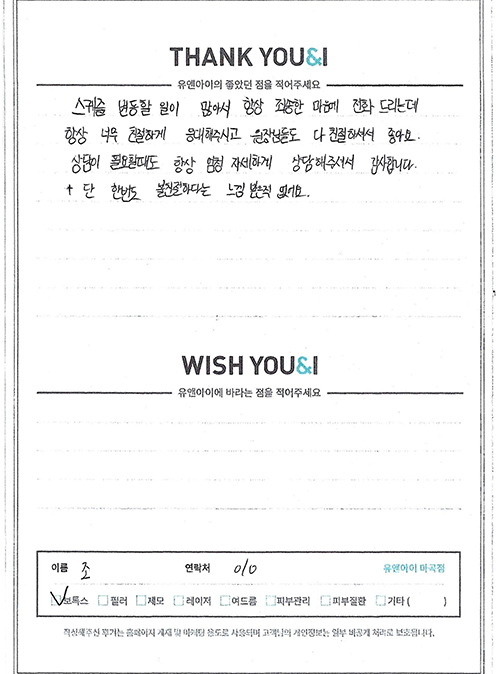 THANK YOU&I
유앤아이의 좋았던 점을 적어주세요
스케줄 변동할 일이 많아서 항상 죄송한 마음에 전화 드리는데
항상 너무 친절하게 응대해주시고 원장님들도 다 친절하셔서 좋아요.
상담이 필요할때도 항상 엄청 자세하게 상담해주셔서 감사합니다.
+ 단 한번도 불친절하다는 느낌 받은적 없어요.
WISH YOU&I
유앤아이에 바라는 점을 적어주세요
이름 조 연락처 010 유앤아이 마곡점
보톡스 필러 제모 레이저 여드름 피부관리 피부질환 기타 ( )
작성해주신 후기는 홈페이지 게재 및 마케팅 용도로 사용되며 고객님의 개인정보는 일부 비공개 처리로 보호됩니다.